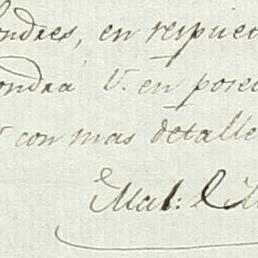 ondres, en respuet
ondra V. en posec
con mas detalle